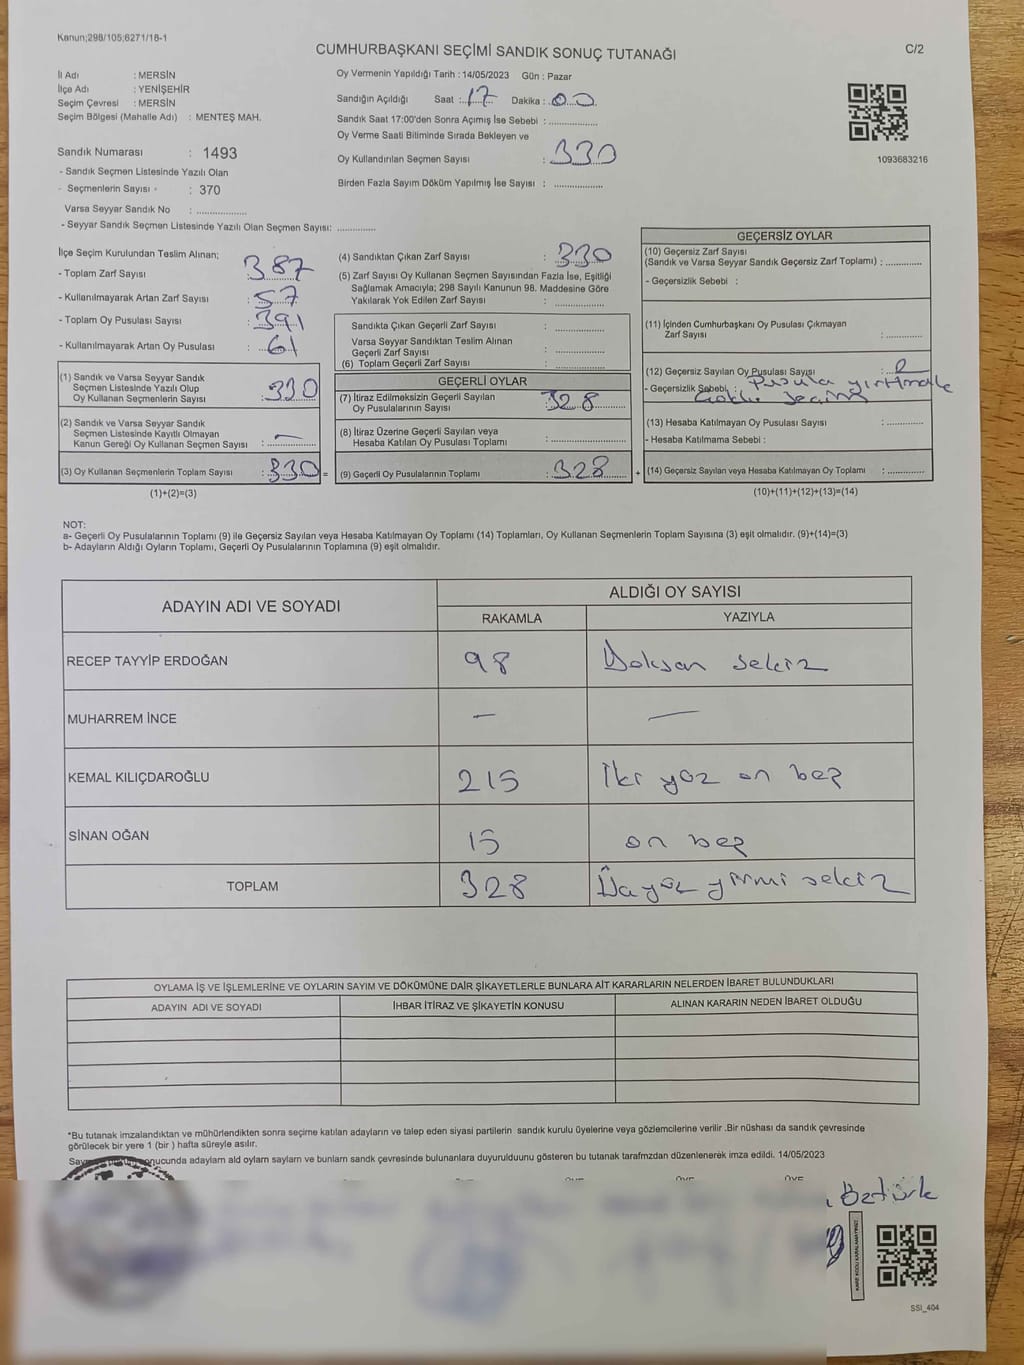 Kanun;298/105;6271/18-1
CUMHURBAŞKANI SEÇİMİ SANDIK SONUÇ TUTANAĞI
C/2
İl Adı : MERSİN
İlçe Adı : YENİŞEHİR
Seçim Çevresi : MERSİN
Seçim Bölgesi (Mahalle Adı) : MENTEŞ MAH.
Sandık Numarası : 1493
- Sandık Seçmen Listesinde Yazılı Olan
- Seçmenlerin Sayısı : 370
Varsa Seyyar Sandık No : ..................
- Seyyar Sandık Seçmen Listesinde Yazılı Olan Seçmen Sayısı: ..............
Oy Vermenin Yapıldığı Tarih : 14/05/2023 Gün : Pazar
Sandığın Açıldığı Saat : 17 Dakika : 00
Sandık Saat 17:00'den Sonra Açımış İse Sebebi : ..................
Oy Verme Saati Bitiminde Sırada Bekleyen ve
Oy Kullandırılan Seçmen Sayısı : 330
Birden Fazla Sayım Döküm Yapılmış İse Sayısı : ..................
1093683216
İlçe Seçim Kurulundan Teslim Alınan;
- Toplam Zarf Sayısı : 387
- Kullanılmayarak Artan Zarf Sayısı : 57
- Toplam Oy Pusulası Sayısı : 391
- Kullanılmayarak Artan Oy Pusulası : 61
(1) Sandık ve Varsa Seyyar Sandık
Seçmen Listesinde Yazılı Olup
Oy Kullanan Seçmenlerin Sayısı : 330
(2) Sandık ve Varsa Seyyar Sandık
Seçmen Listesinde Kayıtlı Olmayan
Kanun Gereği Oy Kullanan Seçmen Sayısı : —
(3) Oy Kullanan Seçmenlerin Toplam Sayısı : 330 =
(1)+(2)=(3)
(4) Sandıktan Çıkan Zarf Sayısı : 330
(5) Zarf Sayısı Oy Kullanan Seçmen Sayısından Fazla İse, Eşitliği
Sağlamak Amacıyla; 298 Sayılı Kanunun 98. Maddesine Göre
Yakılarak Yok Edilen Zarf Sayısı : ..................
Sandıkta Çıkan Geçerli Zarf Sayısı : ..................
Varsa Seyyar Sandıktan Teslim Alınan
Geçerli Zarf Sayısı : ..................
(6) Toplam Geçerli Zarf Sayısı : ..................
GEÇERLİ OYLAR
(7) İtiraz Edilmeksizin Geçerli Sayılan
Oy Pusulalarının Sayısı : 328
(8) İtiraz Üzerine Geçerli Sayılan veya
Hesaba Katılan Oy Pusulası Toplamı : ..................
(9) Geçerli Oy Pusulalarının Toplamı : 328 +
GEÇERSİZ OYLAR
(10) Geçersiz Zarf Sayısı
(Sandık ve Varsa Seyyar Sandık Geçersiz Zarf Toplamı) : .............
- Geçersizlik Sebebi :
(11) İçinden Cumhurbaşkanı Oy Pusulası Çıkmayan
Zarf Sayısı : .............
(12) Geçersiz Sayılan Oy Pusulası Sayısı : 2
- Geçersizlik Sebebi : Pusula
(13) Hesaba Katılmayan Oy Pusulası Sayısı : .............
- Hesaba Katılmama Sebebi :
(14) Geçersiz Sayılan veya Hesaba Katılmayan Oy Toplamı : .............
(10)+(11)+(12)+(13)=(14)
NOT:
a- Geçerli Oy Pusulalarının Toplamı (9) ile Geçersiz Sayılan veya Hesaba Katılmayan Oy Toplamı (14) Toplamları, Oy Kullanan Seçmenlerin Toplam Sayısına (3) eşit olmalıdır. (9)+(14)=(3)
b- Adayların Aldığı Oyların Toplamı, Geçerli Oy Pusulalarının Toplamına (9) eşit olmalıdır.
ADAYIN ADI VE SOYADI ALDIĞI OY SAYISI
RAKAMLA YAZIYLA
RECEP TAYYİP ERDOĞAN 98 Doksan sekiz
MUHARREM İNCE — —
KEMAL KILIÇDAROĞLU 215 İki yüz on beş
SİNAN OĞAN 15 on beş
TOPLAM 328 Üç yüz yirmi sekiz
OYLAMA İŞ VE İŞLEMLERİNE VE OYLARIN SAYIM VE DÖKÜMÜNE DAİR ŞİKAYETLERLE BUNLARA AİT KARARLARIN NELERDEN İBARET BULUNDUKLARI
ADAYIN ADI VE SOYADI İHBAR İTİRAZ VE ŞİKAYETİN KONUSU ALINAN KARARIN NEDEN İBARET OLDUĞU
*Bu tutanak imzalandıktan ve mühürlendikten sonra seçime katılan adayların ve talep eden siyasi partilerin sandık kurulu üyelerine veya gözlemcilerine verilir .Bir nüshası da sandık çevresinde
görülecek bir yere 1 (bir ) hafta süreyle asılır.
onucunda adaylam ald oylam saylam ve bunlam sandk çevresinde bulunanlara duyuruldunu gösteren bu tutanak tarafmzdan düzenlenerek imza edildi. 14/05/2023
Öztürk
KARE KODU KARALAMAYINIZ
SSI_404